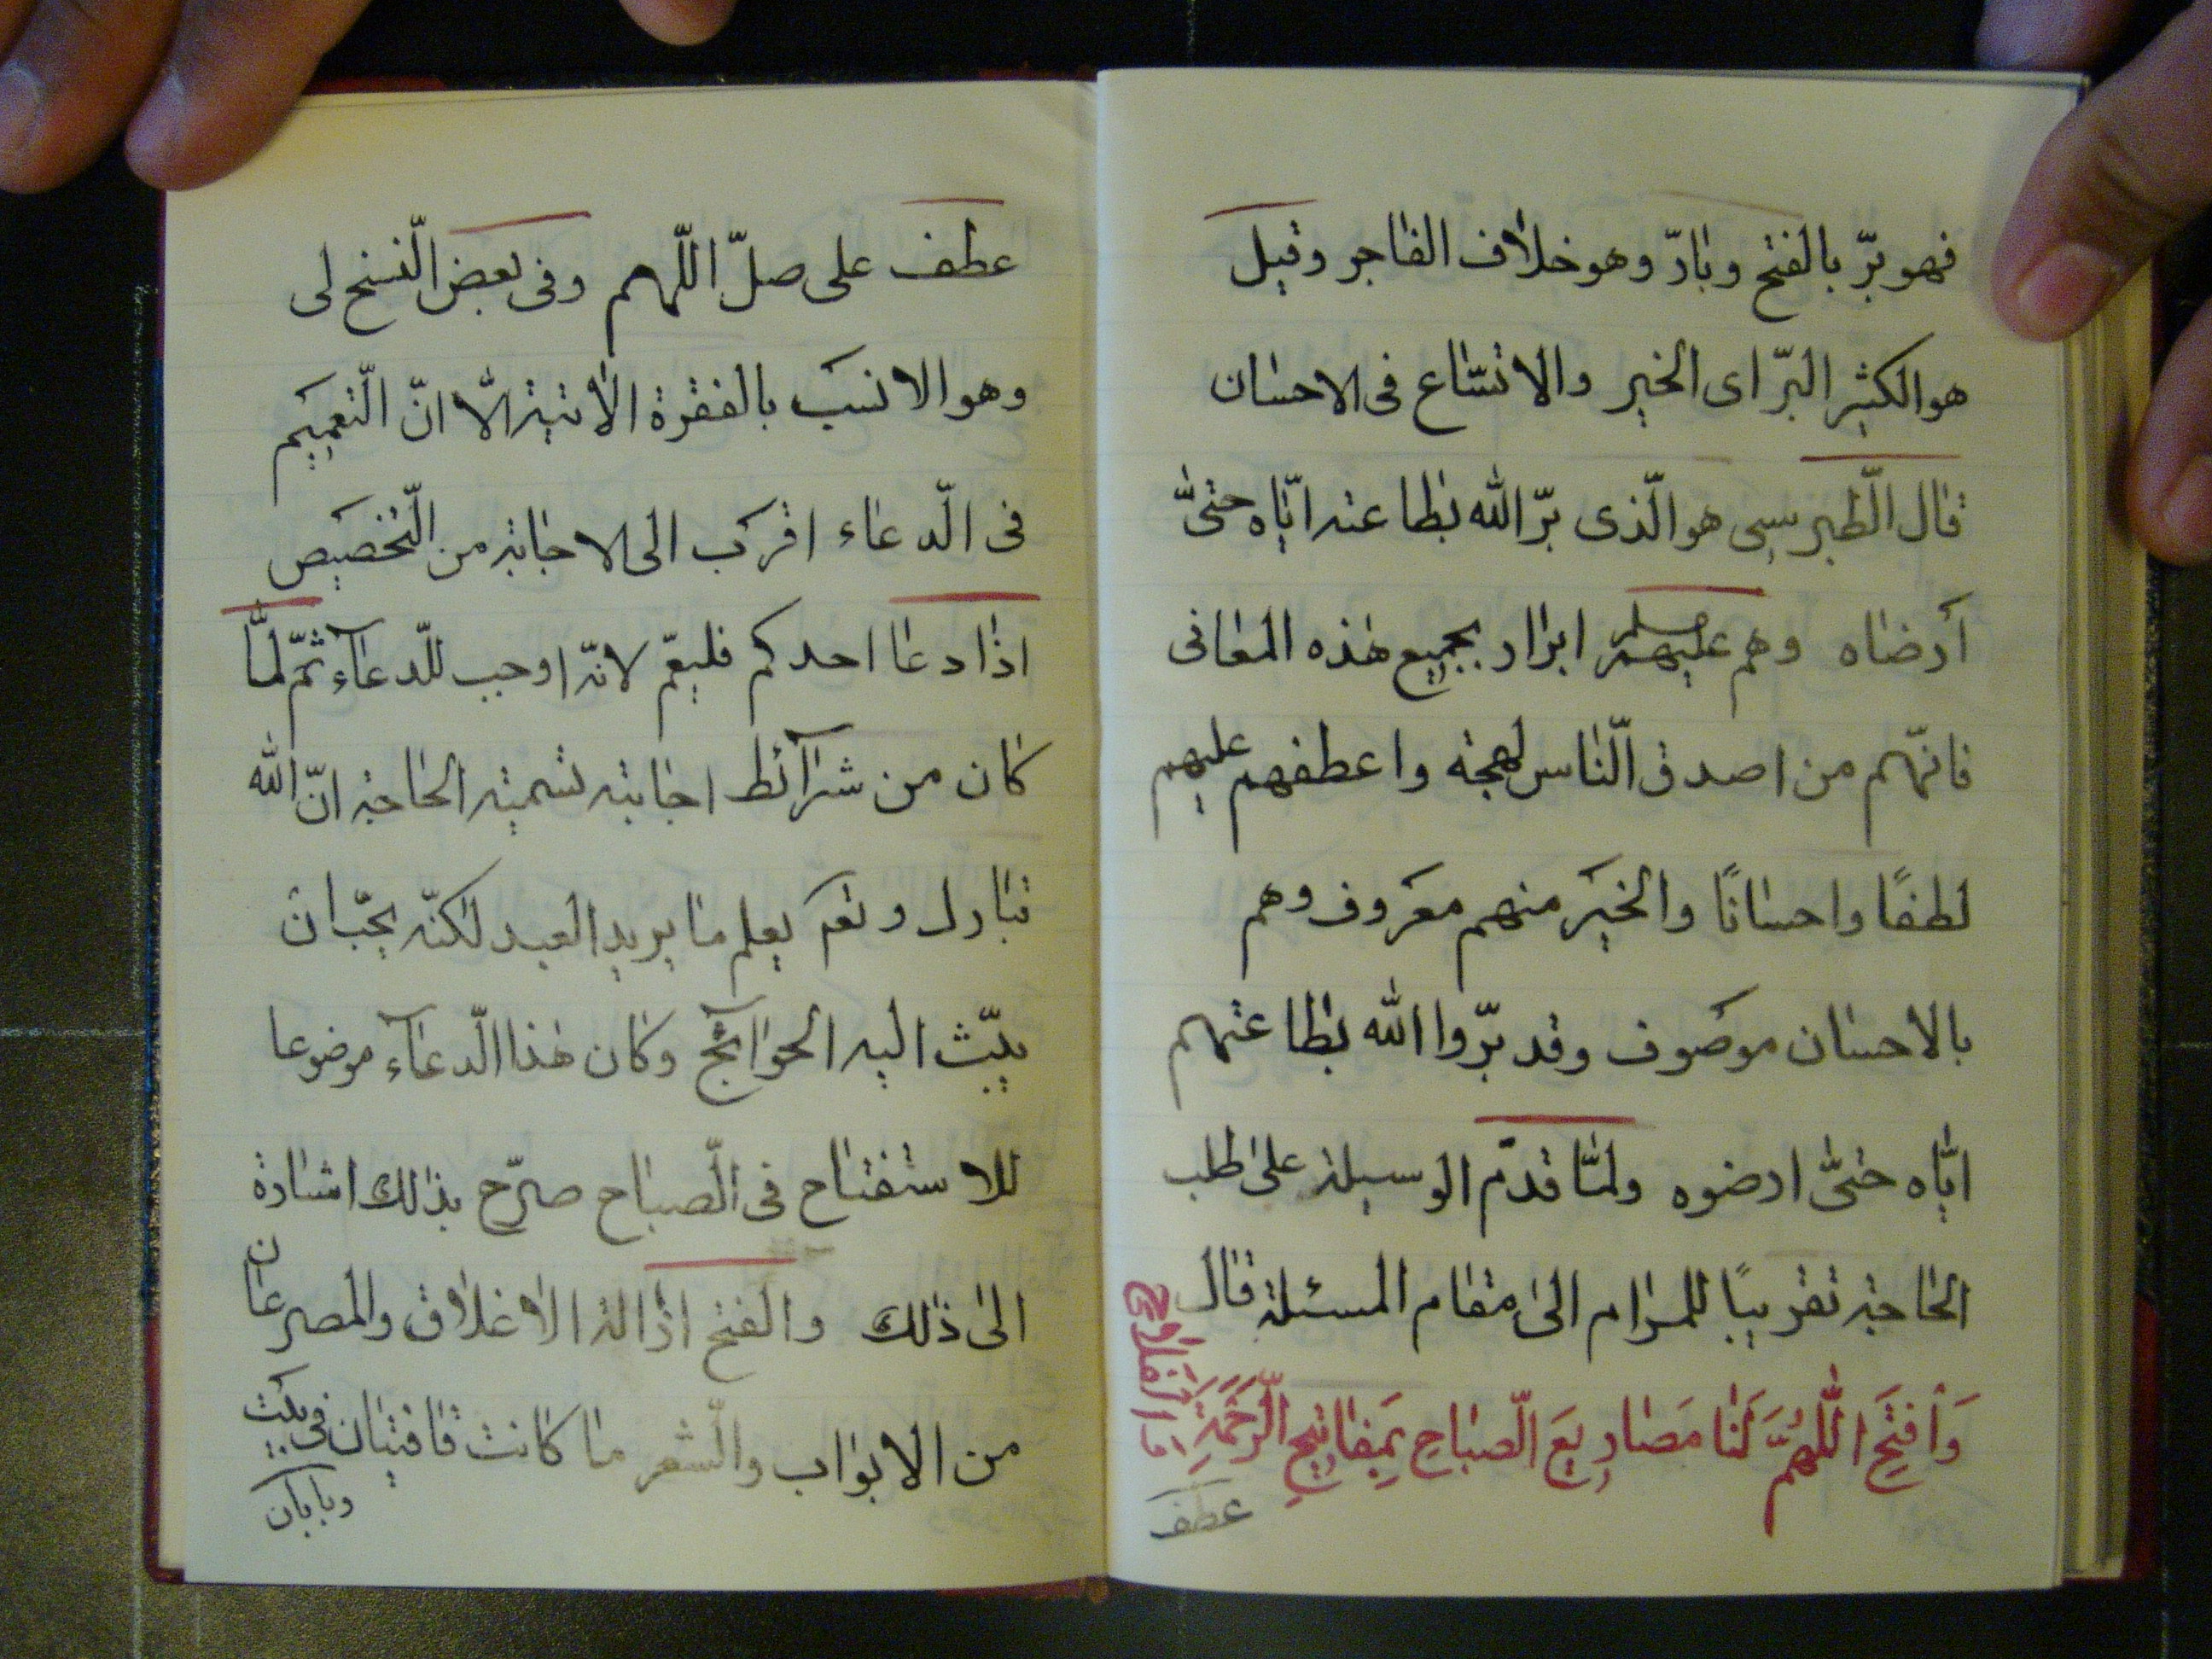 فهو برّ بالفتح وبارّ وهو خلاف الفاجر وقيل
هو الكثير البرّ اى الخير والاتّساع فى الاحسان
قال الّطبرسى هو الّذى برّ الله بطاعته ايّاه حتىّ
أرضاه وهم عليهم ابرار بجميع هذه المعانى
فانّهم من اصدق الّناس لهجة واعطفهم عليهم
لطفًا واحسانًا والخير منهم معروف وهم
بالاحسان موصوف وقد برّوا الله بطاعتهم
ايّاه حتىّ ارضوه ولمّا قدّم الوسيلة على طلب
الحاجة تقريبًا للمرام الى مقام المسئلة قال
وَاْفتَحِ اللّهُمَّ لَنا مَصاريعَ الّصباحِ بِمَفاتيحِ الّرَحْمَةِ وَالفَلاحِ
عطف
عطف على صلّ اللّهم وفى بعض الّنسخ لى
وهو الانسب بالفقرة الاتية الّا انّ الّتعميم
فى الّدعاء اقرب الى الاجابة من الّتخصيص
اذا دعا احدكم فليعمّ لانّه اوجب للّدعآء ثمّ لمّا
كان من شرآئط اجابته تسمية الحاجة انّ الله
تبارك وتعم يعلم ما يريد العبد لكنّه يحبّ ان
يبّث اليه الحوآئج وكان هذا الّدعآء موضوعا
للاستفتاح فى الّصباح صرّح بذلك اشارة
الى ذلك والفتح ازالة الاغلاق والمصرعان
من الابواب والّشعر ما كانت قافيتان فى بيت
وبابان